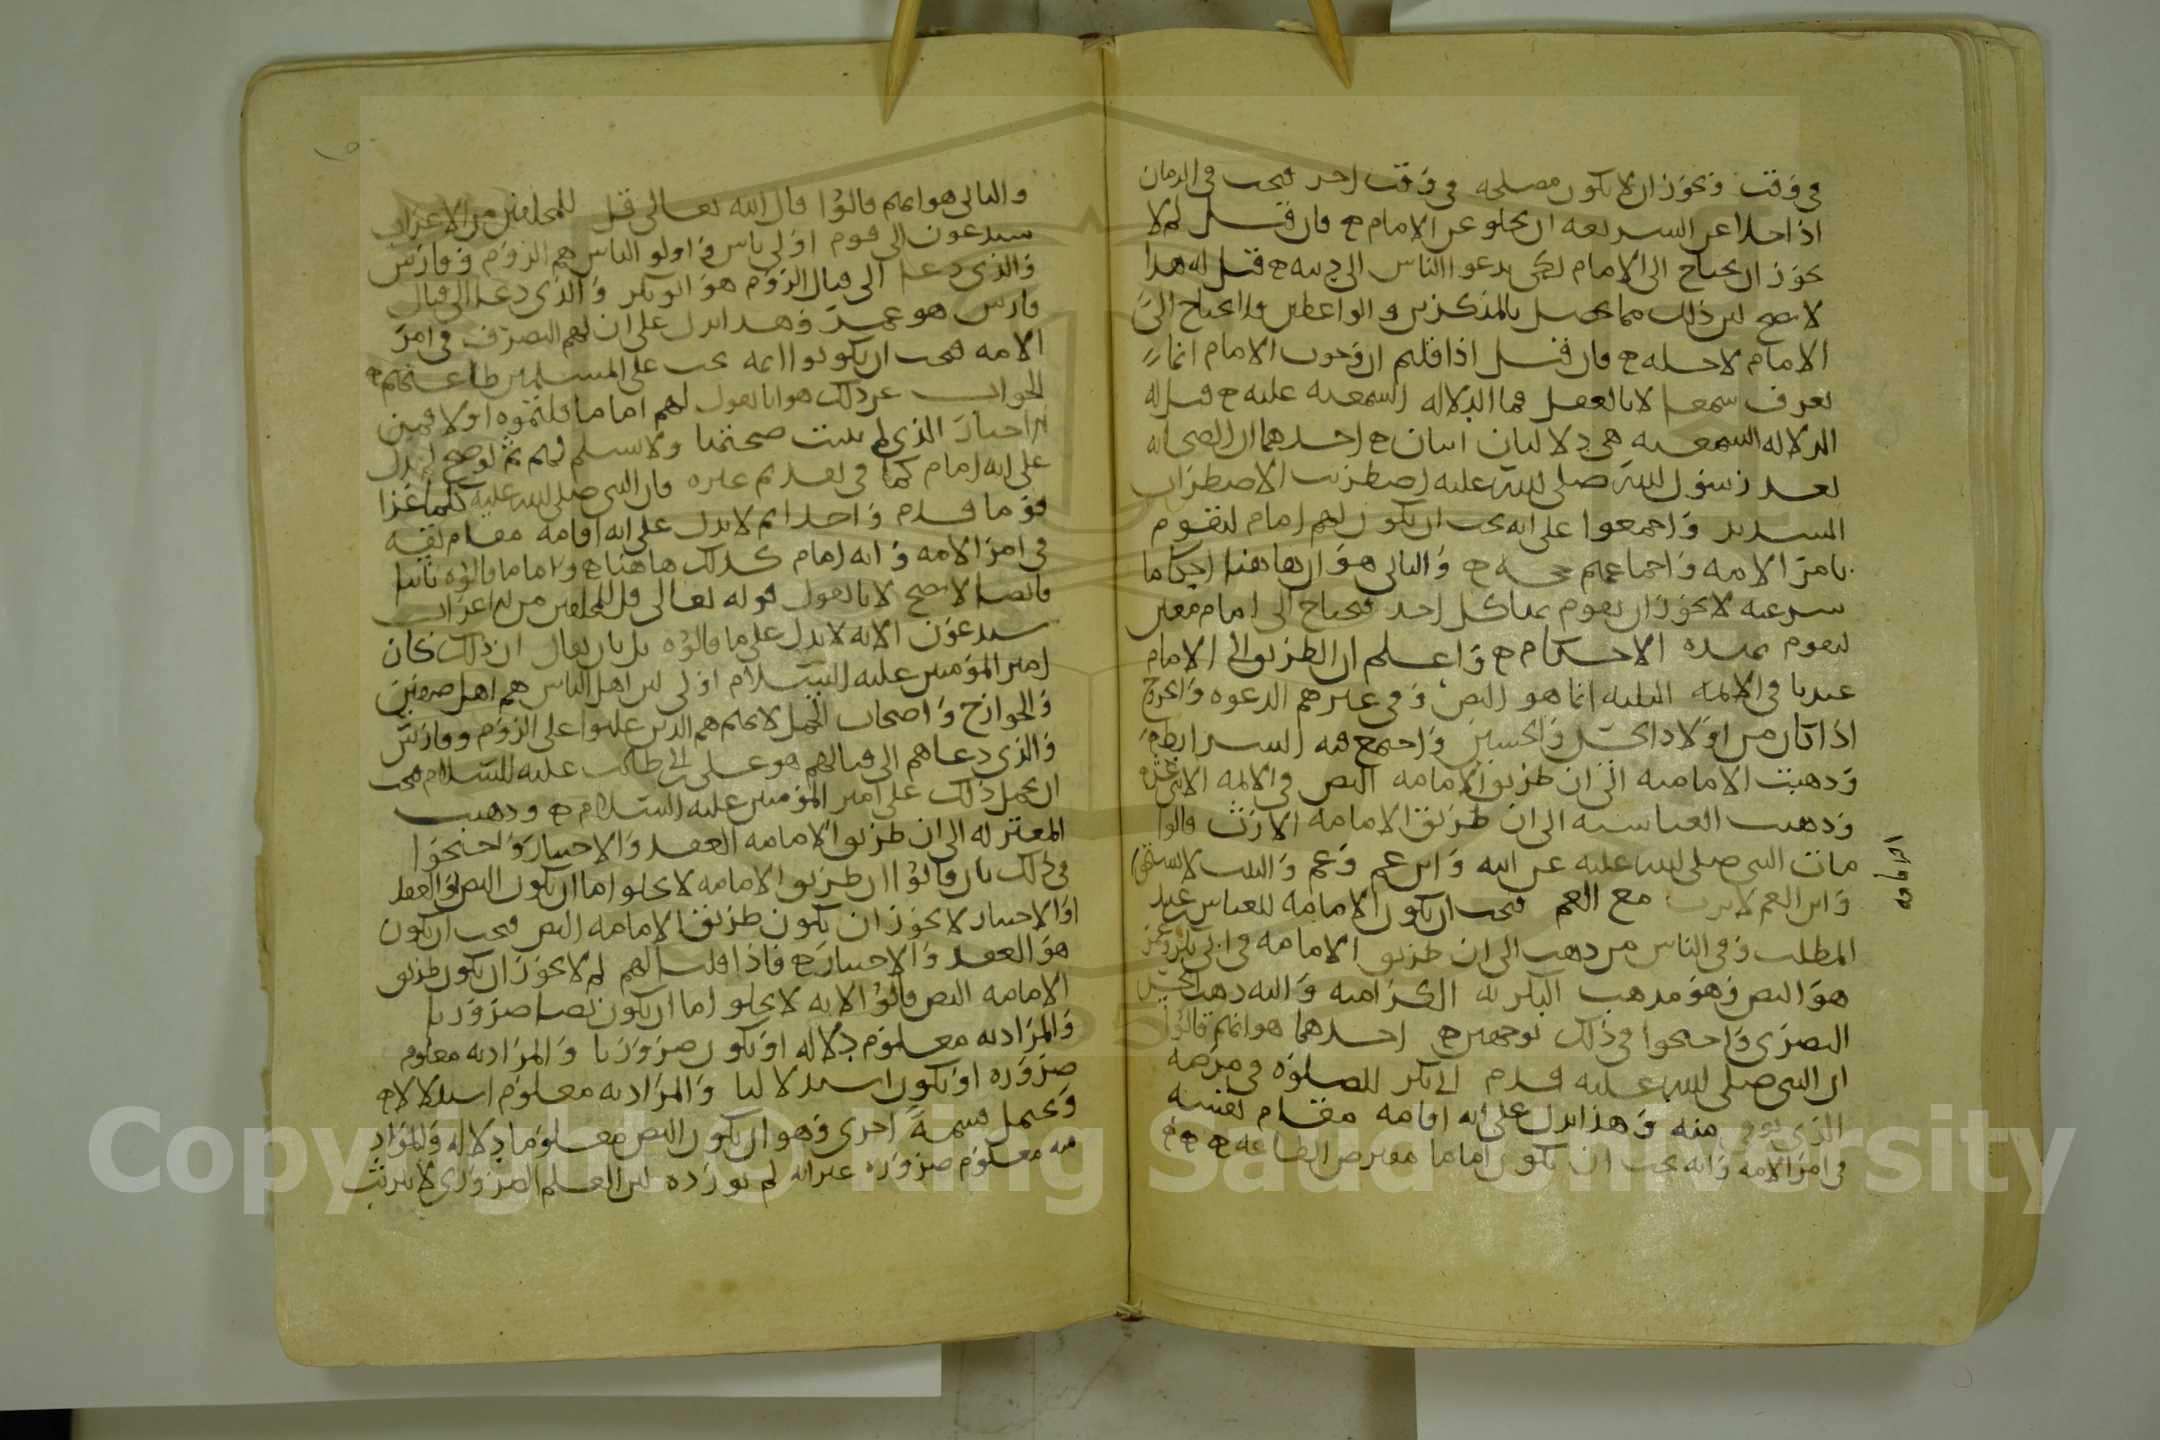 في وقت ونجوز ان لا يكون مصلحه في وقت اخر فيجب في الزمان
اذا خلا عن الشريعه ان يخلو عن الامام ه فان قيل لم لا
يجوز ان يحتاج الى الامام لكي يدعوا الناس الى دينه ه قيل له هذا
لا يصح لان ذلك مما يحصل بالمذكرين والواعظين ولا يحتاج الى
الامام لاجله ه فان قيل اذا قلتم ان وجوب الامام انما
يعرف سمعا لا بالعقل فما الدلاله السمعيه عليه ه قيل له
الدلاله السمعيه هي دلالتان اثنتان ه احدهما ان الصحابه
بعد رسول الله صلى الله عليه اضطربت الاضطراب
الشديد واجمعوا على انه يجب ان يكون لهم امام ليقوم
بامر الامه واجماعهم حجه ه والثاني هو ان هاهنا احكاما
شرعيه لا يجوز ان يقوم بها كل احد فيحتاج الى امام معين
ليقوم بهذه الاحكام ه واعلم ان الطريق الى الامام
عندنا في الائمه الثلثه انما هو النص وفي غيرهم الدعوه والخروج
اذا كان من اولاد الحسن والحسين واجتمع فيه الشرايط
وذهبت الاماميه الى ان طريق الامامه النص في الائمه الاثني عشر
وذهبت العباسيه الى ان طريق الامامه الارث قالوا
مات النبي صلى الله عليه عن ابنه وابن عم وعم والبنت لا تستحق
وابن العم لا يرث مع العم فيجب ان يكون الامامه للعباس عبد
المطلب وفي الناس من ذهب الى ان طريق الامامه في ابي بكر وعمر
هو النص وهو مذهب البكريه الكراميه واليه ذهب الحسن
البصري واحتجوا في ذلك بوجهين ه احدهما هو انهم قالوا
ان النبي صلى الله عليه قدم ابي بكر للصلوه في مرضه
الذي توفي منه وهذا يدل على انه اقامه مقام نفسه
في امر الامه وانه يجب ان يكون اماما مفترض الطاعه ه ه ه
الامامه
والثاني هو انهم قالوا قال الله تعالى قل للمخلفين من الاعراب
ستدعون الى قوم اولي باس واولو الباس هم الروم وفارس
والذي دعا الى قتال الروم هو ابو بكر والذي دعا الى قتال
فارس هو عمر وهذا يدل على ان لهم التصرف في امر
الامه فيجب ان يكونوا ائمه يجب على المسلمين طاعتهم ه
الجواب عن ذلك هو انا نقول لهم اما ما قلتموه اولا فمن
اخبار الذي لم يثبت صحتها ولا نسلم لهم ثم لو صح لم يدل
على انه امام كما في تقديم غيره فان النبي صلى الله عليه كلما غزا
قوما قدم واحدا ثم لا يدل على انه اقامه مقام نفسه
في امر الامه وانه امام كذلك هاهنا ه واما ما قالوه ثانيا
فايضا لا يصح لانا نقول قوله تعالى قل للمخلفين من الاعراب
ستدعون الايه لا يدل على ما قالوه بل بان يقال ان ذلك كان
امير المؤمنين عليه السلام اولى لان اهل الباس هم اهل صفين
والخوارج واصحاب الجمل لانهم هم الذين غلبوا على الروم وفارس
والذي دعاهم الى قتالهم هو علي بن ابي طالب عليه السلام فيجب
ان يحمل ذلك على امير المؤمنين عليه السلام ه وذهبت
المعتزله الى ان طريق الامامه العقد والاختيار واحتجوا
في ذلك بان قالوا ان طريق الامامه لا يخلو اما ان يكون النص او العقد
او الاختيار لا يجوز ان يكون طريق الامامه النص فيجب ان يكون
هو العقد والاختيار ه فاذا قلنا لهم لم لا يجوز ان يكون طريق
الامامه النص قالوا لانه لا يخلو اما ان يكون نصا ضروريا
والمراد به معلوم بدلاله او يكون ضروريا والمراد به معلوم
ضروره او يكون استدلاليا والمراد به معلوم استدلالا ه
ويحتمل قسمة اخرى وهو ان يكون النص معلوما بدلاله والمراد
به معلوم ضروره غير انه لم نورده لان العلم الضروري لا يترتب
Copyright © King Saud University